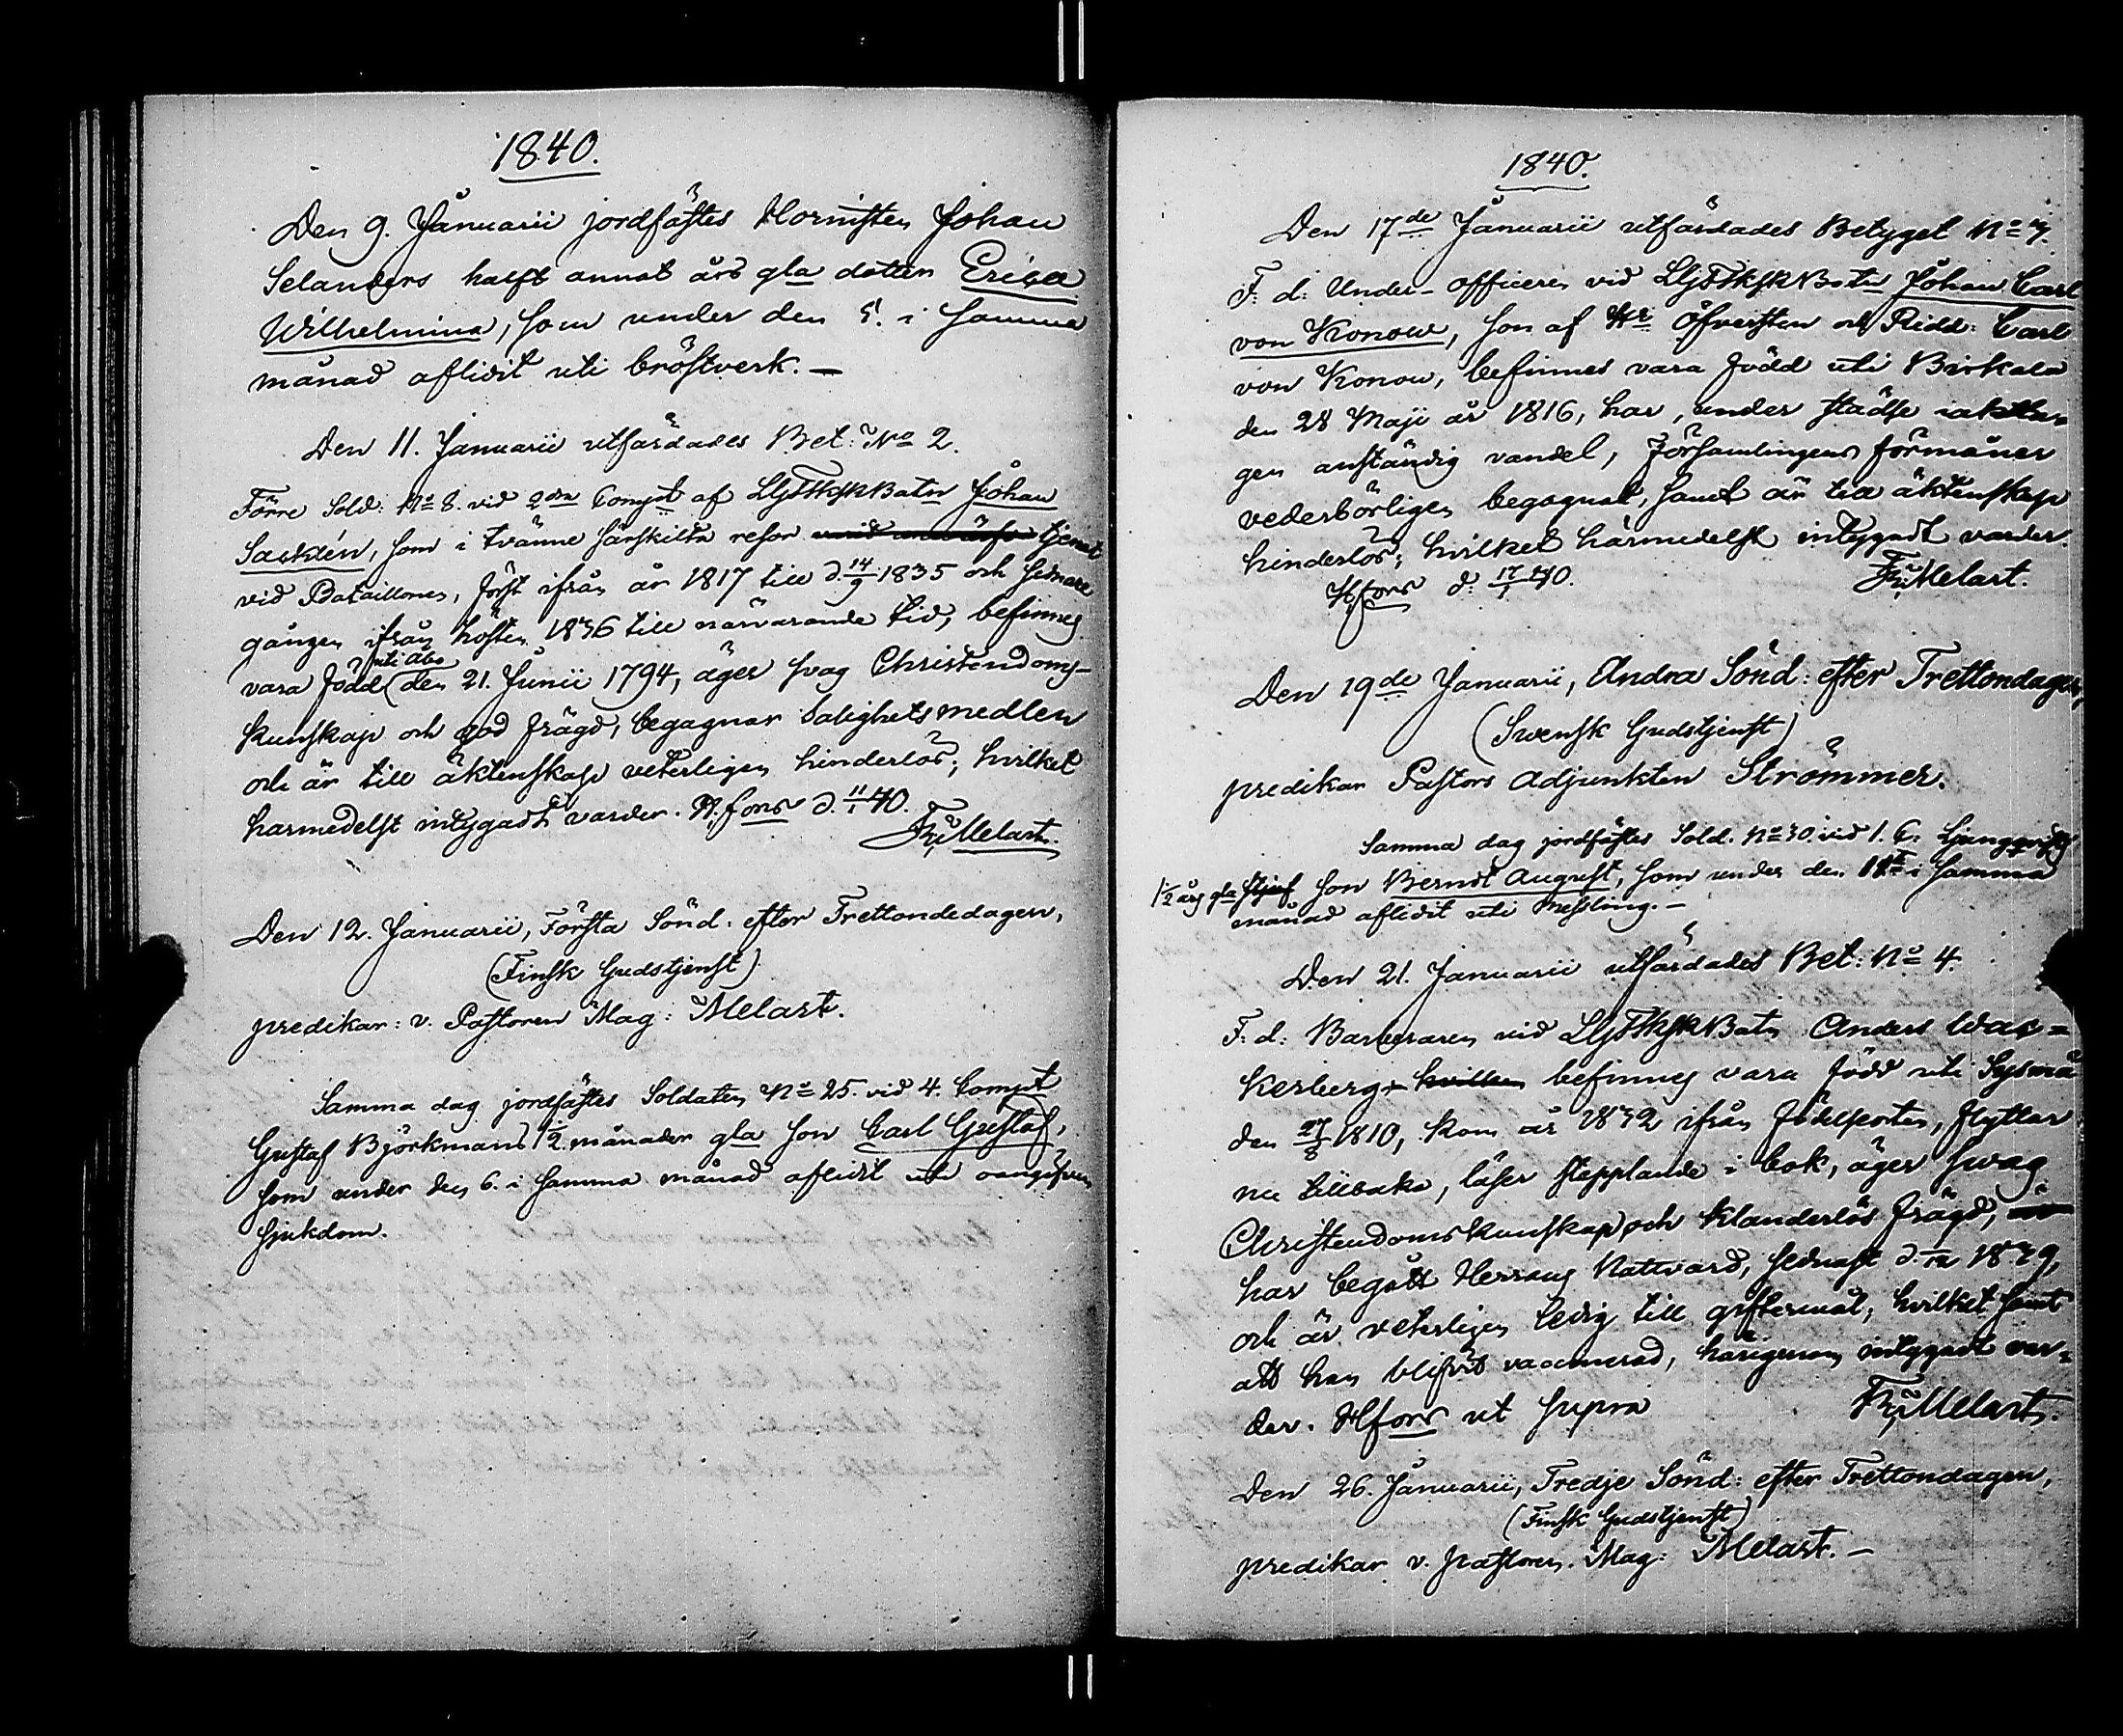 1840.
Den 9. Januarii jordfästes Hornisten Johan
Selanders halft annat års gla dotter Erica
Wilhelmina, som under den 5. i samma
månad aflidit uti bröstverk. —
Den 11. Januarii utfärdades Bet: No 2.
Förre Sold: No 8. vid 2dra Compt af LGFSkSkBatn Johan
Sacklén, som i tvänne särskilta resor tjenat
vid Bataillonen, först ifrån år 1817 till d. 14/9 1835 och sednare
gången ifrån hösten 1836 till närvarande tid, befinnes
uti Åbo
vara född den 21. Junii 1794, äger svag Christendoms-
kunskap och god frägd, begagnar salighetsmedlen
och är till äktenskap veterligen hinderlös; hvilket
harmedelst intygadt varder. H:fors d. 11/1 40.
Fr: Melart.
Den 12. Januarii, Första Sönd: efter Trettondedagen,
(Finsk Gudstjenst)
predikar: v. Pastoren Mag: Melart.
Samma dag jordfästes Soldaten No 25. vid 4. Compt
Gustaf Björkmans 1/2 månader gla son Carl Gustaf,
som under den 6. i samma månad aflidit uti oangifven
sjukdom.
1840.
Den 17de Januarii utfärdades Betyget No 3.
F: d: Under-officeren vid LGFSkSkBatn Johan Carl
von Konow, son af Hr Öfversten och Ridd: Carl
von Konow, befinnes vara född uti Birkala
den 28 Maji år 1816, har, under städse iakttagen
gen anständig vandel, församlingens förmåner
vederbörligen begagnat, samt är till äktenskap
hinderlös; hvilket härmedelst intygadt varder.
H:fors d: 17/1 40. Fr: Melart.
Den 19de Januarii, Andra Sönd: efter Trettondagen,
(Swensk Gudstjenst)
predikar Pastors Adjunkten Strömmer.
Samma dag jordfästes Sold. No 30. vid 1. C. Ljungqvists
1 1/2 års gla stjuf son Berndt August, som under den i samma
månad aflidit uti Messling. —
Den 21. Januarii utfärdades Bet: No 4.
F: d: Barberaren vid LGFSkSkBatn Anders Wac=
kerberg, hvilken befinnes vara född uti Sysmä
den 27/8 1810, kom år 1832 ifrån födelseorten, flyttar
nu tillbaka, läser stapplande i bok, äger svag
Christendomskunskap och klanderlös frägd,
har begått Herrans Nattvard, sednast d. 1/12 1839,
och är veterligen ledig till giftermål; hvilket samt
att han blifvit vaccinerad, härigenom intygadt var=
der. H:fors ut supra Fr: Melart.
Den 26. Januarii, Tredje Sönd: efter Trettondagen,
(Finsk Gudstjenst)
predikar v. pastoren. Mag: Melart. —